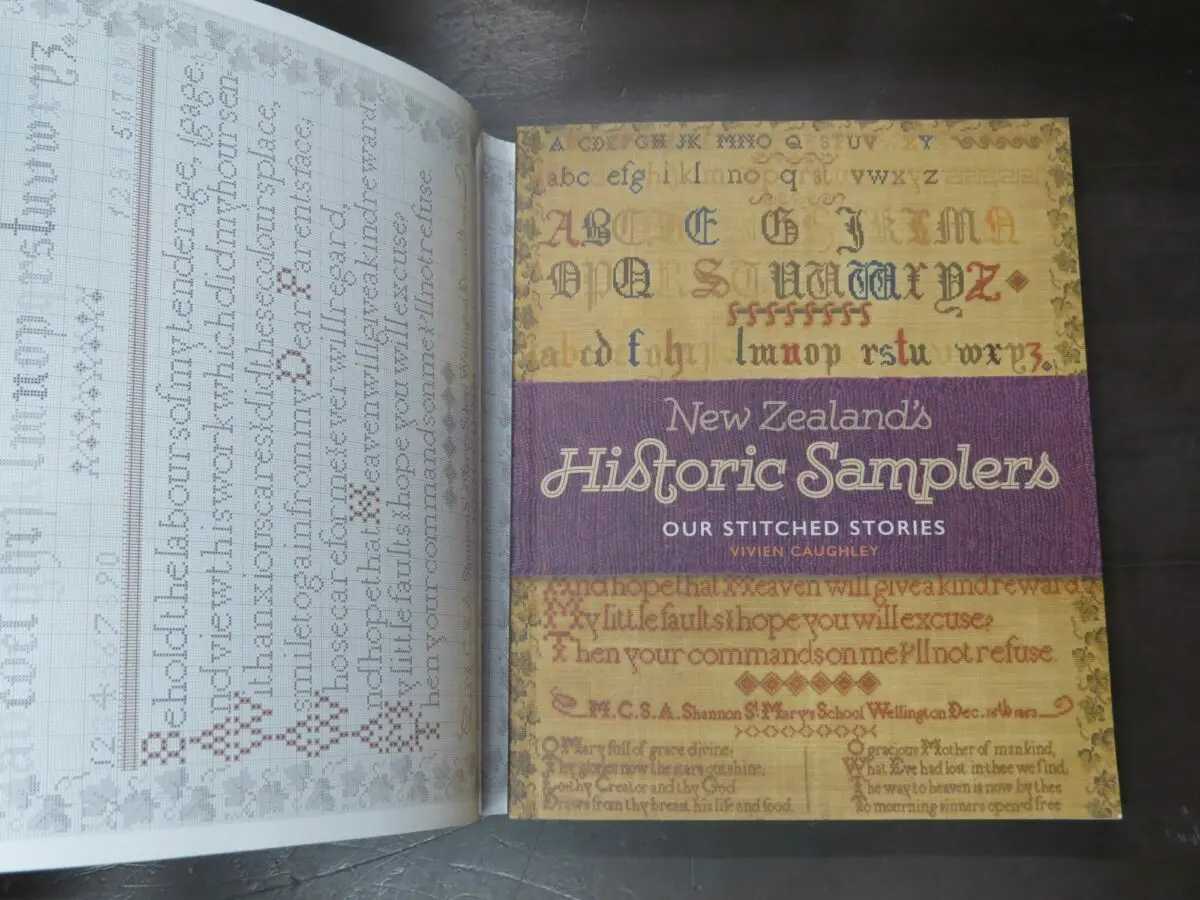 1234567890
eholdthelaboursofmytenderage, (gage:
ndviewthisworkwhichdidmyhoursen-
ithanxiouscareIdidthesecoloursplace,
smiletogainfrommyDearParentsface,
hosecareformeIeverwillregard,
ndhopethatHeavenwillgiveakindreward
ylittlefaultsIhopeyouwillexcuse?
henyourcommandsonmeI'llnotrefuse.
ABCDEFGH JK MNO Q STUV XY
abc efghiklmnopqrstuvwxyz
ABCDEFGHIJKLMN
OPQRSTUVWXYZ
abcdefghlmnopqrstuvwxyz.
New Zealand's
Historic Samplers
OUR STITCHED STORIES
VIVIEN CAUGHLEY
And hope that Heaven will give a kind reward.
My little faults I hope you will excuse?
Then your commands on me I'll not refuse.
M.C.S.A. Shannon St Marys School Wellington Dec.
O Mary full of grace divine;
Thy glories now the stars outshine;
Lo thy Creator and thy God
Draws from thy breast his life and food.
O gracious Mother of mankind,
What Eve had lost in thee we find,
The way to heaven is now by thee
To mourning sinners open'd free